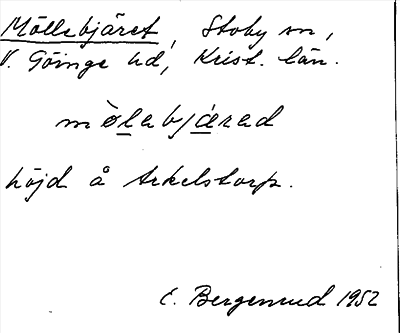 Möllebjäret, Stoby sn,
V. Göinge hd, Krist. län.
mòlabjárad
höjd å Arkelstorp.
E. Bergenrud 1952